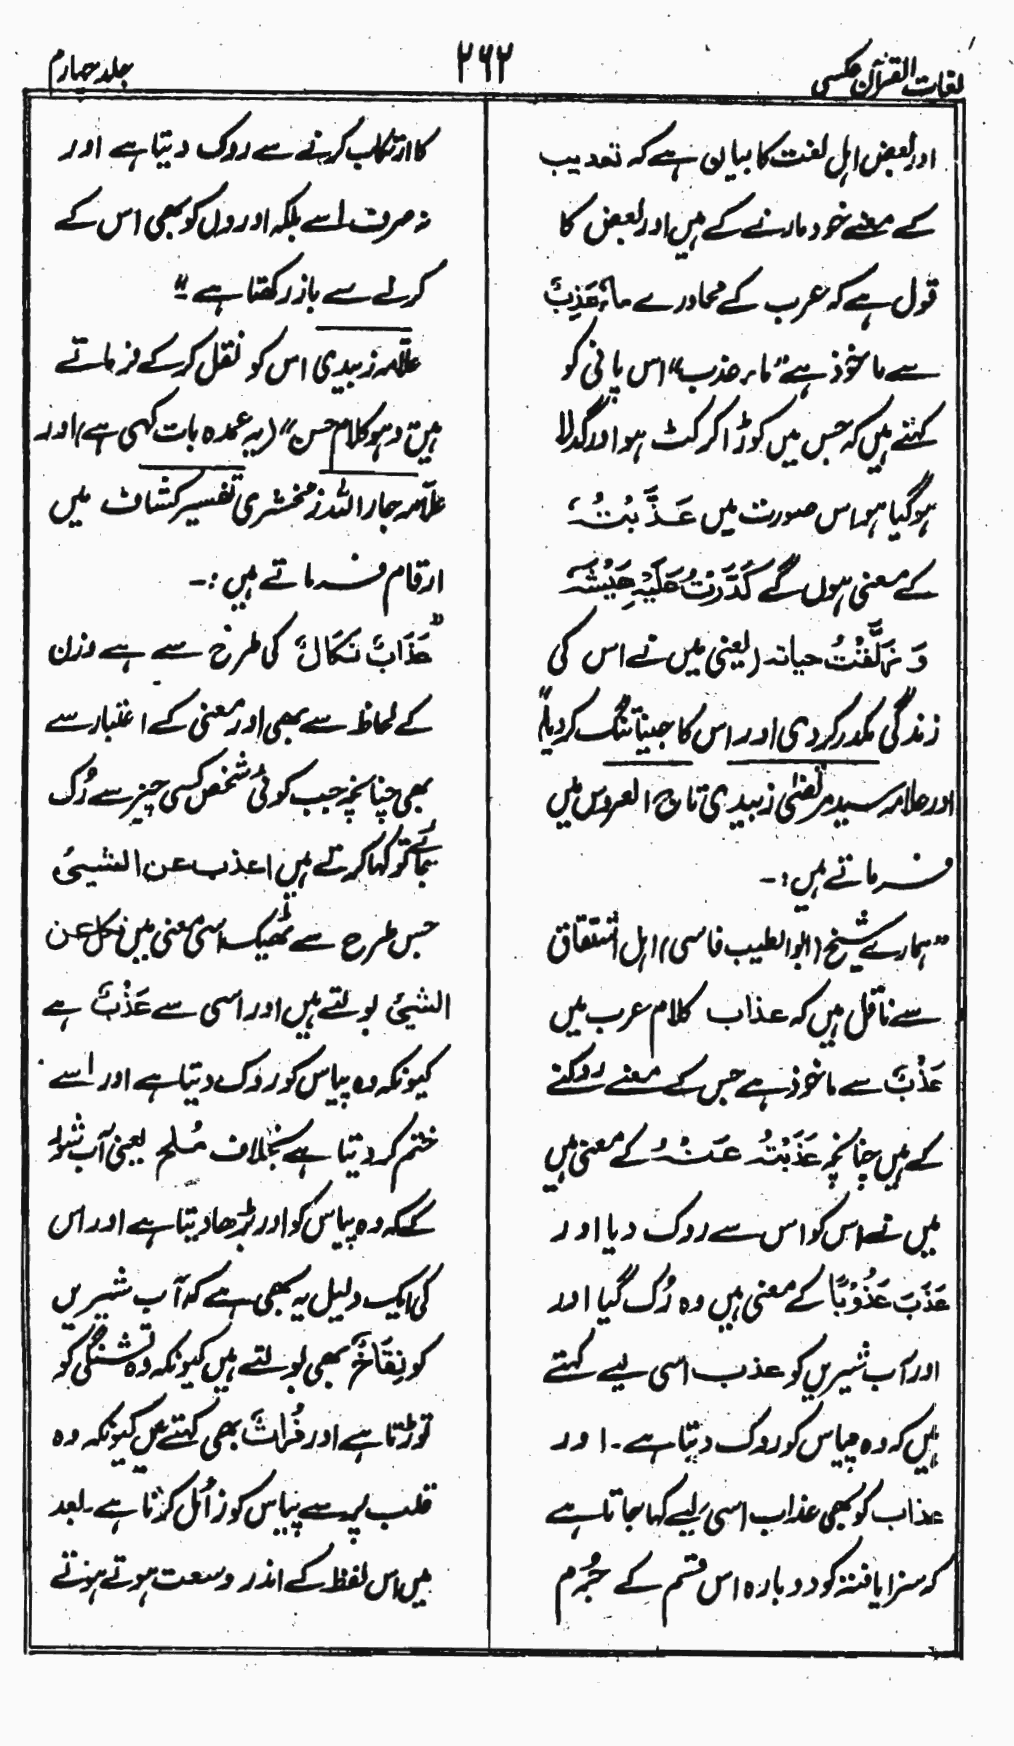 لغات القرآن عکسی
۲۶۲
جلد چہارم
اور بعض اہل لغت کا بیان ہے کہ تعذیب
کے معنے خود مارنے کے ہیں اور بعض کا
قول ہے کہ عرب کے محاورے مَاءٌ عَذِبٌ
سے ماخوذ ہے "ماء عذب" اس پانی کو
کہتے ہیں کہ جس میں کوڑا کرکٹ ہو اور گدلا
ہوگیا ہو، اس صورت میں عَذَّبْتُہٗ
کے معنی ہوں گے کَدَّرْتُ عَلَیْہِ عَیْشَہٗ
وَ زَلَّقْتُ حیاتہ (یعنی میں نے اس کی
زندگی مکدر کردی اور اس کا جینا تنگ کردیا)"
اور علامہ سید مرتضٰی زبیدی تاج العروس میں
فرماتے ہیں :۔
"ہمارے شیخ (ابو الطیب فاسی) اہل اشتقاق
سے ناقل ہیں کہ عذاب کلام عرب میں
عَذْبٌ سے ماخوذ ہے جس کے معنے روکنے
کے ہیں چنانچہ عَذَبْتُہٗ عَنْہُ کے معنی ہیں
میں نے اس کو اس سے روک دیا اور
عَذَبَ عَذُوْبًا کے معنی ہیں وہ رُک گیا اور
اور آب شیریں کو عذب اسی لیے کہتے
ہیں کہ وہ پیاس کو روک دیتا ہے۔ اور
عذاب کو بھی عذاب اسی لیے کہا جاتا ہے
کہ سزا یافتہ کو دوبارہ اس قسم کے جُرم
کا ارتکاب کرنے سے روک دیتا ہے اور
نہ صرف اسے بلکہ اوروں کو بھی اس کے
کرنے سے باز رکھتا ہے"
علّامہ زبیدی اس کو نقل کرکے فرماتے
ہیں وھو کلام حسن" (یہ عمدہ بات کہی ہے) اور
علّامہ جار اللہ زمخشری تفسیر کشاف میں
ارقام فرماتے ہیں :۔
"عَذَابٌ نَکَالٌ کی طرح سے ہے وزن
کے لحاظ سے بھی اور معنی کے اعتبار سے
بھی چنانچہ جب کوئی شخص کسی چیز سے رُک
جائے تو کہا کرتے ہیں اعذب عن الشیئ
جس طرح سے ٹھیک اسی معنی میں نکل عن
الشیئ بولتے ہیں اور اسی سے عَذْبٌ ہے
کیونکہ وہ پیاس کو روک دیتا ہے اور اسے
ختم کر دیتا ہے بخلاف مُلح یعنی آب شور
کے کہ وہ پیاس کو اور بڑھا دیتا ہے اور اس
کی ایک دلیل یہ بھی ہے کہ آب شیریں
کو نِقَاخٌ بھی بولتے ہیں کیونکہ وہ تشنگی کو
توڑتا ہے اور فُرَاتٌ بھی کہتے ہیں کیونکہ وہ
قلب پر سے پیاس کو زائل کرتا ہے۔ بعد
میں اس لفظ کے اندر وسعت ہوتے ہوتے